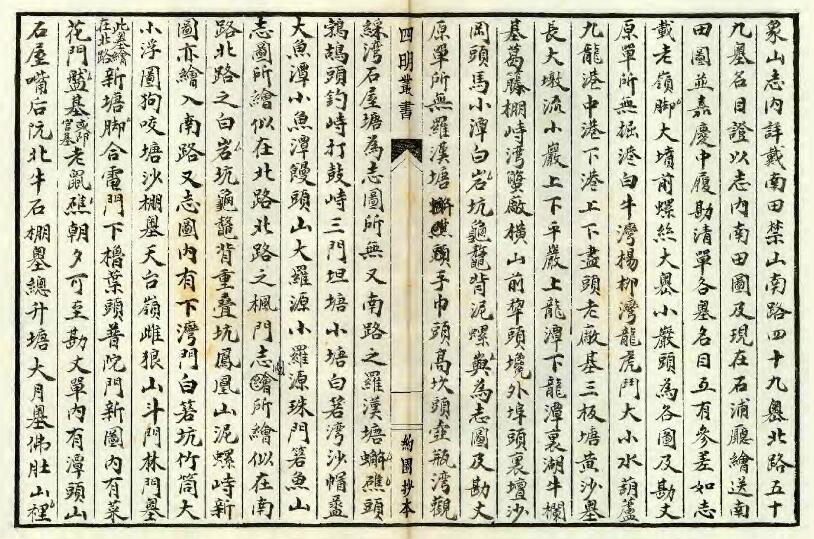 象山志內詳戴南田禁山南路四十九嶴北路五十
九嶴名目證以志內南田圖及現在石浦廳繪送南
田圖並嘉慶中履勘清單各嶴名目互有參差如志
載老嶺脚大墳前螺絲大嶴小巖頭為各圖及勘丈
原單所無掘港白牛灣楊柳灣龍虎鬥大小水葫蘆
九龍港中港下港上下盡頭老廠基三板塘黄沙嶴
長大墩流小巖上下平巖上龍潭下龍潭裏湖牛欄
基葛籐棚崎灣蟹厰橫山前犂頭嘴外埠頭裏壇沙
岡頭馬小潭白岩坑龜鼈背泥螺嶴為志圖及勘丈
原單所無羅漢塘蝌礁頭手巾頭高坎頭壺瓶灣觀
四明叢書
約園抄本
綵灣石屋塘為志圖所無又南路之羅漢塘蝌礁頭
鵓鴣頭釣崎打鼓崎三門坦塘小塘白茖灣沙帽盔
大魚潭小魚潭饅頭山大羅源小羅源珠門茖魚山
志圖所繪似在北路北路之楓門志圖所繪似在南
路北路之白岩坑龜鼈背重叠坑鳳凰山泥螺崎新
圖亦繪入南路又志圖內有下灣門白茖坑竹筒大
小浮圖狗咬塘沙棚嶴天台嶺雌狼山斗門林門嶴
此嶴繪在北路新塘脚合電門下櫓葉頭普陀門新圖內有菜
花門盬基或即官基老鼠礁朝夕可至勘丈單內有潭頭山
石屋嘴后阮北牛石棚嶴總升塘大月嶴佛肚山裡